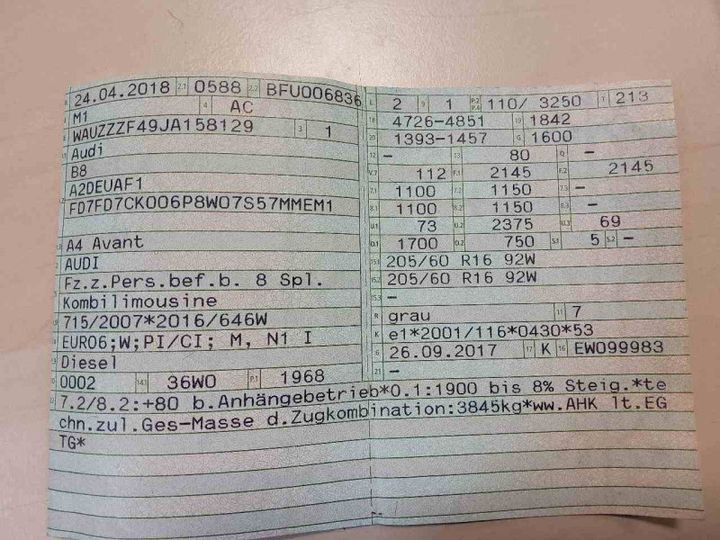 24.04.2018 2.1 0588 2.2 BFU006836
M1 4 AC
WAUZZZF49JA158129 3 1
Audi
B8
A2DEUAF1
FD7FD7CK006P8W07S57MMEM1
A4 Avant
AUDI
Fz.z.Pers.bef.b. 8 Spl.
Kombilimousine
715/2007*2016/646W
EURO6;W;PI/CI; M, N1 I
Diesel
0002 14.1 36W0 P.1 1968
L 2 9 1 P.2 P.4 110/ 3250 T 213
18 4726-4851 19 1842
20 1393-1457 G 1600
12 – 13 80 Q –
V.7 112 F.1 2145 F.2 2145
7.1 1100 7.2 1150 7.3 –
8.1 1100 8.2 1150 8.3 –
U.1 73 U.2 2375 U.3 69
O.1 1700 O.2 750 S.1 5 S.2 –
15.1 205/60 R16 92W
15.2 205/60 R16 92W
15.3 –
R grau 11 7
K e1*2001/116*0430*53
6 26.09.2017 17 K 16 EW099983
21 –
22 7.2/8.2:+80 b.Anhängebetrieb*0.1:1900 bis 8% Steig.*te
chn.zul.Ges-Masse d.Zugkombination:3845kg*ww.AHK lt.EG
TG*